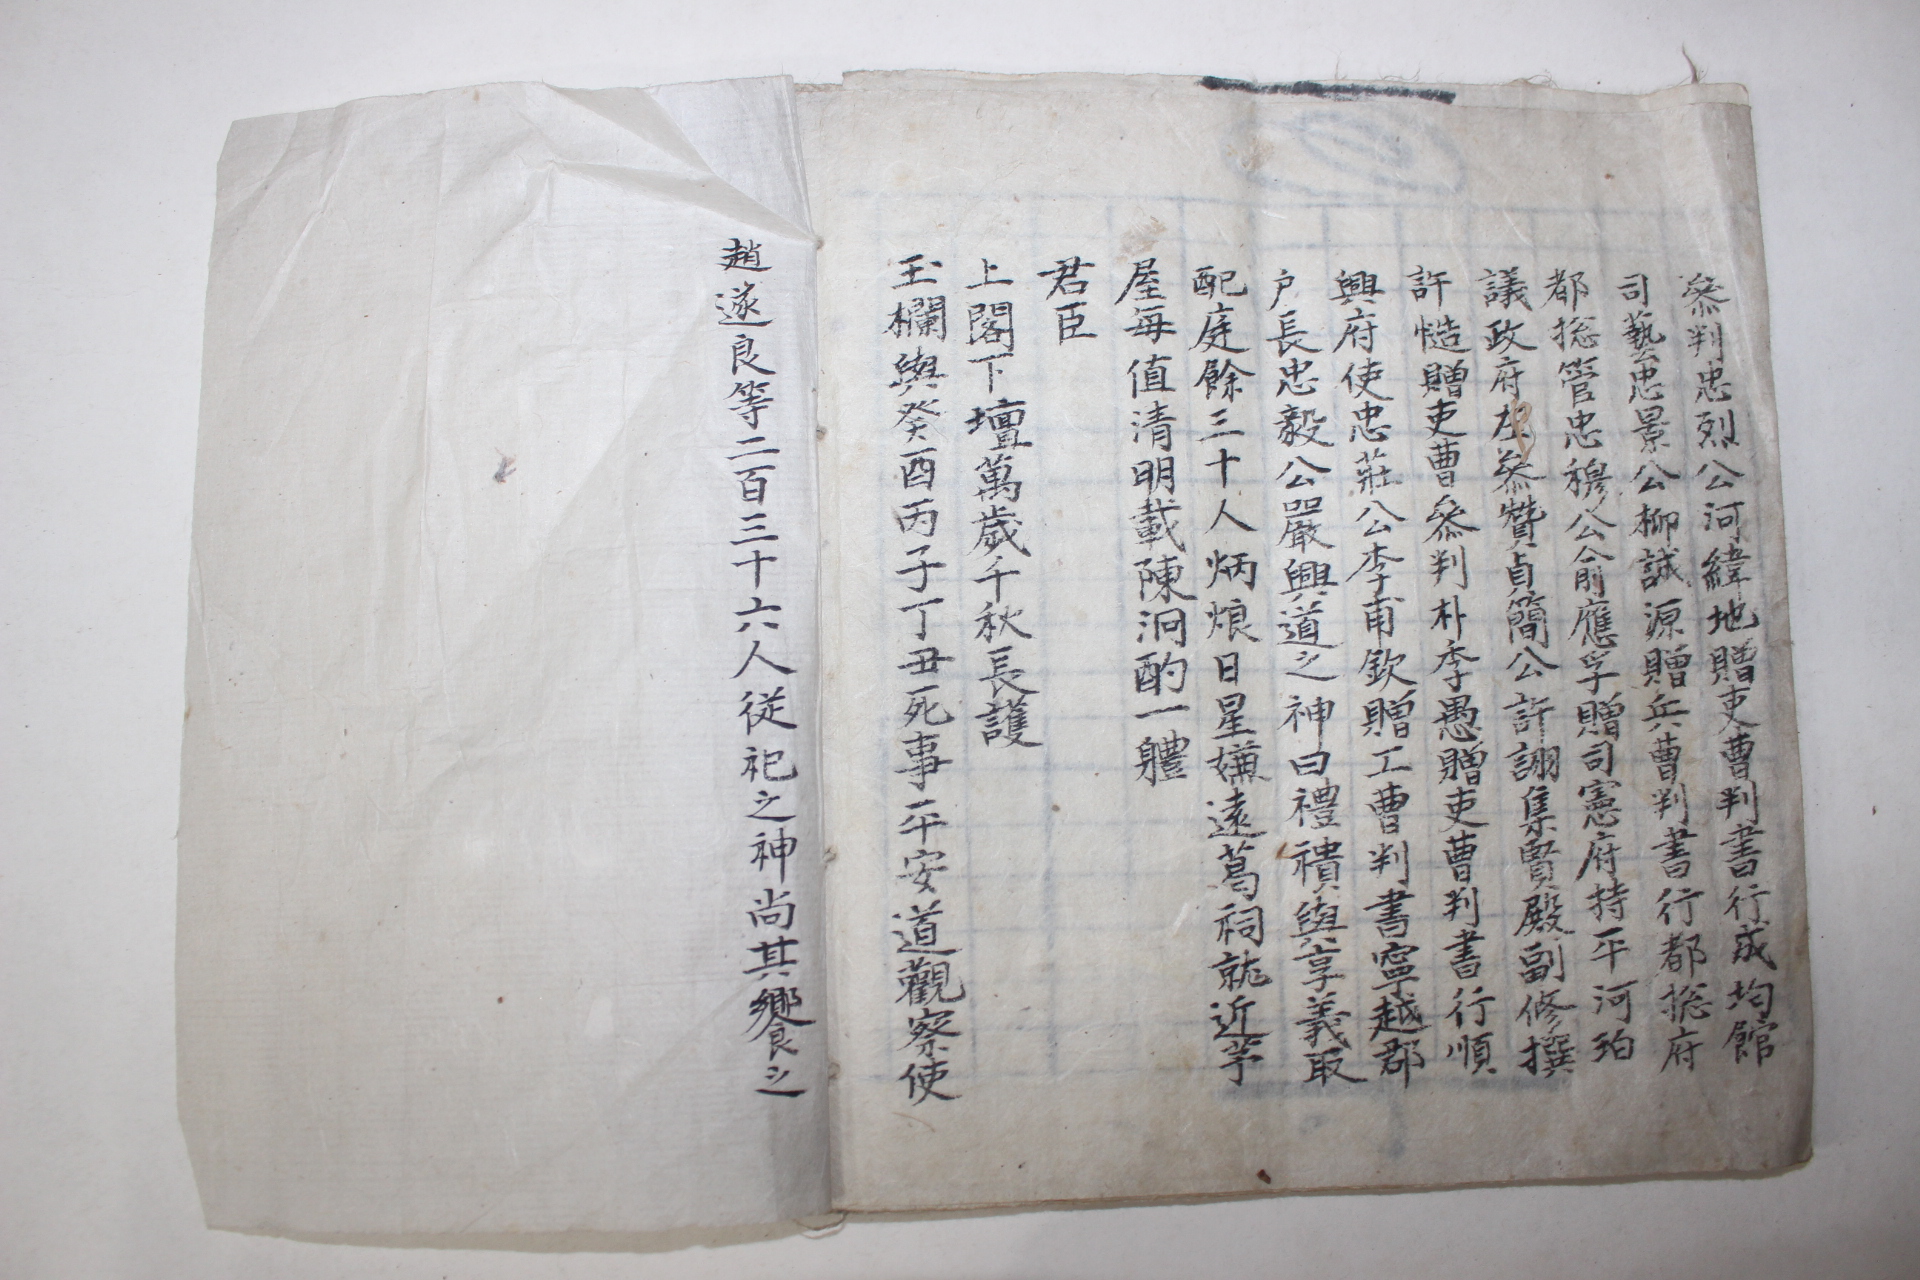 叅判忠烈公河緯地贈吏曹判書行成均館
司藝忠景公柳誠源贈兵曹判書行都捴府
都捴管忠穆公俞應孚贈司憲府持平河珀
議政府左叅贊貞簡公許詡集賢殿副修撰
許慥贈吏曹叅判朴季愚贈吏曹判書行順
興府使忠莊公李甫欽贈工曹判書寧越郡
户長忠毅公嚴興道之神曰禮禯與享義取
配庭餘三十人炳烺日星嫌遠葛祠就近茅
屋每值清明載陳泂酌一體
君臣
上閣下壇萬歲千秋長護
玉欄與癸酉丙子丁丑死事平安道觀察使
趙遂良等二百三十六人從祀之神尚其饗之